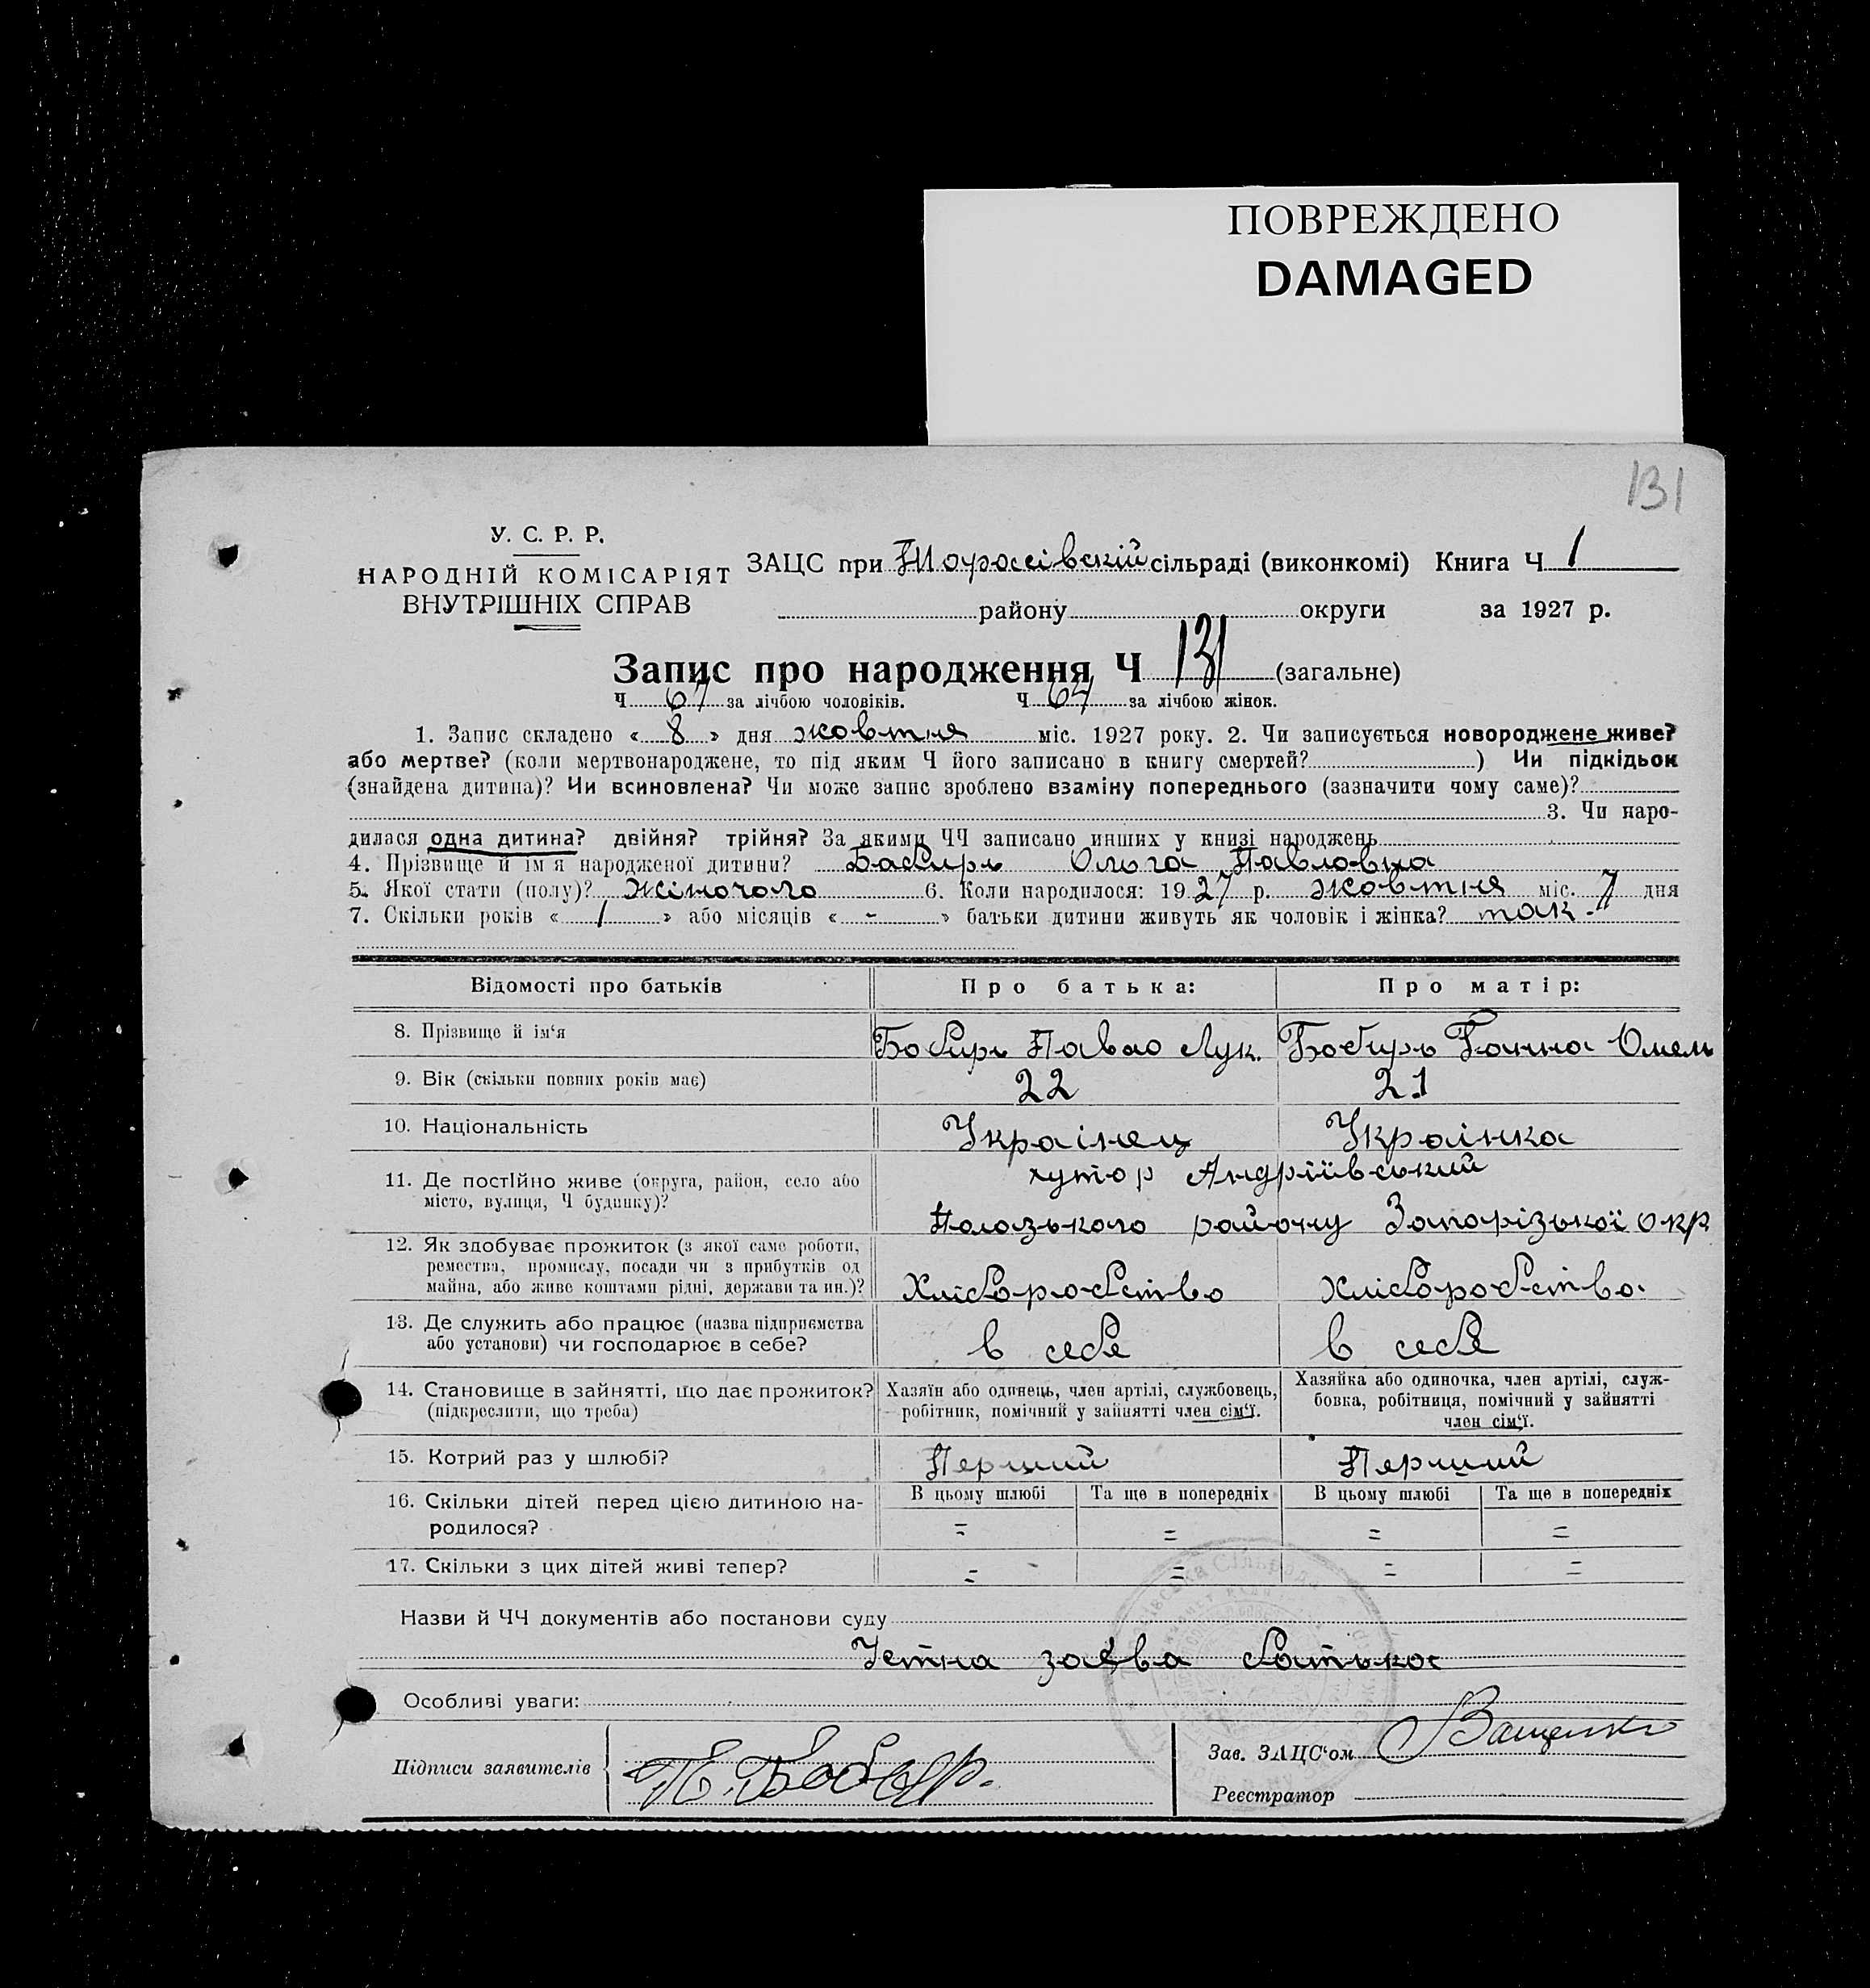 ПОВРЕЖДЕНО
DAMAGED
131
У. С. Р. Р.
НАРОДНІЙ КОМІСАРІЯТ
ВНУТРІШНІХ СПРАВ
ЗАЦС при сільраді (виконкомі) Книга Ч 1
району округи за 1927 р.
Запис про народження Ч 131 (загальне)
Ч 67 за лічбою чоловіків. Ч 64 за лічбою жінок.
1. Запис складено « 8 » дня жовтня міс. 1927 року. 2. Чи записується новороджене живе?
або мертве? (коли мертвонароджене, то під яким Ч його записано в книгу смертей? ) Чи підкідьок
(знайдена дитина)? Чи всиновлена? Чи може запис зроблено взаміну попереднього (зазначити чому саме)?
3. Чи наро-
дилася одна дитина? двійня? трійня? За якими ЧЧ записано инших у книзі народжень
4. Прізвище й ім'я народженої дитини? Бабирь Ольга Павловна
5. Якої стати (полу)? Жіночого 6. Коли народилося: 1927 р. жовтня міс. 7 дня
7. Скільки років « 1 » або місяців « - » батьки дитини живуть як чоловік і жінка? так.
Відомості про батьків Про батька: Про матір:
8. Прізвище й ім'я Бобирь Павло Лук. Бобирь Ганна Омель
9. Вік (скільки повних років має) 22 21
10. Національність Українец Українка
11. Де постійно живе (округа, район, село або
місто, вулиця, Ч будинку)?
хутор Андріївський
Пологського району Запорізької окр
12. Як здобуває прожиток (з якої саме роботи,
ремества, промислу, посади чи з прибутків од
майна, або живе коштами рідні, держави та ин.)?
Хліборобство Хліборобство.
13. Де служить або працює (назва підприємства
або установи) чи господарює в себе?
в себе в себе
14. Становище в зайнятті, що дає прожиток?
(підкреслити, що треба)
Хазяїн або одинець, член артілі, службовець,
робітник, помічний у зайнятті член сім'ї.
Хазяйка або одиночка, член артілі, служ-
бовка, робітниця, помічний у зайнятті
член сім'ї.
15. Котрий раз у шлюбі? Перший Перший
16. Скільки дітей перед цією дитиною на-
родилося?
В цьому шлюбі Та ще в попередніх В цьому шлюбі Та ще в попередніх
= = = =
17. Скільки з цих дітей живі тепер? = = = =
Назви й ЧЧ документів або постанови суду
Устна заява батька
Особливі уваги:
Підписи заявителів П. Бобир.
Зав. ЗАЦС'ом Ващенко
Реєстратор